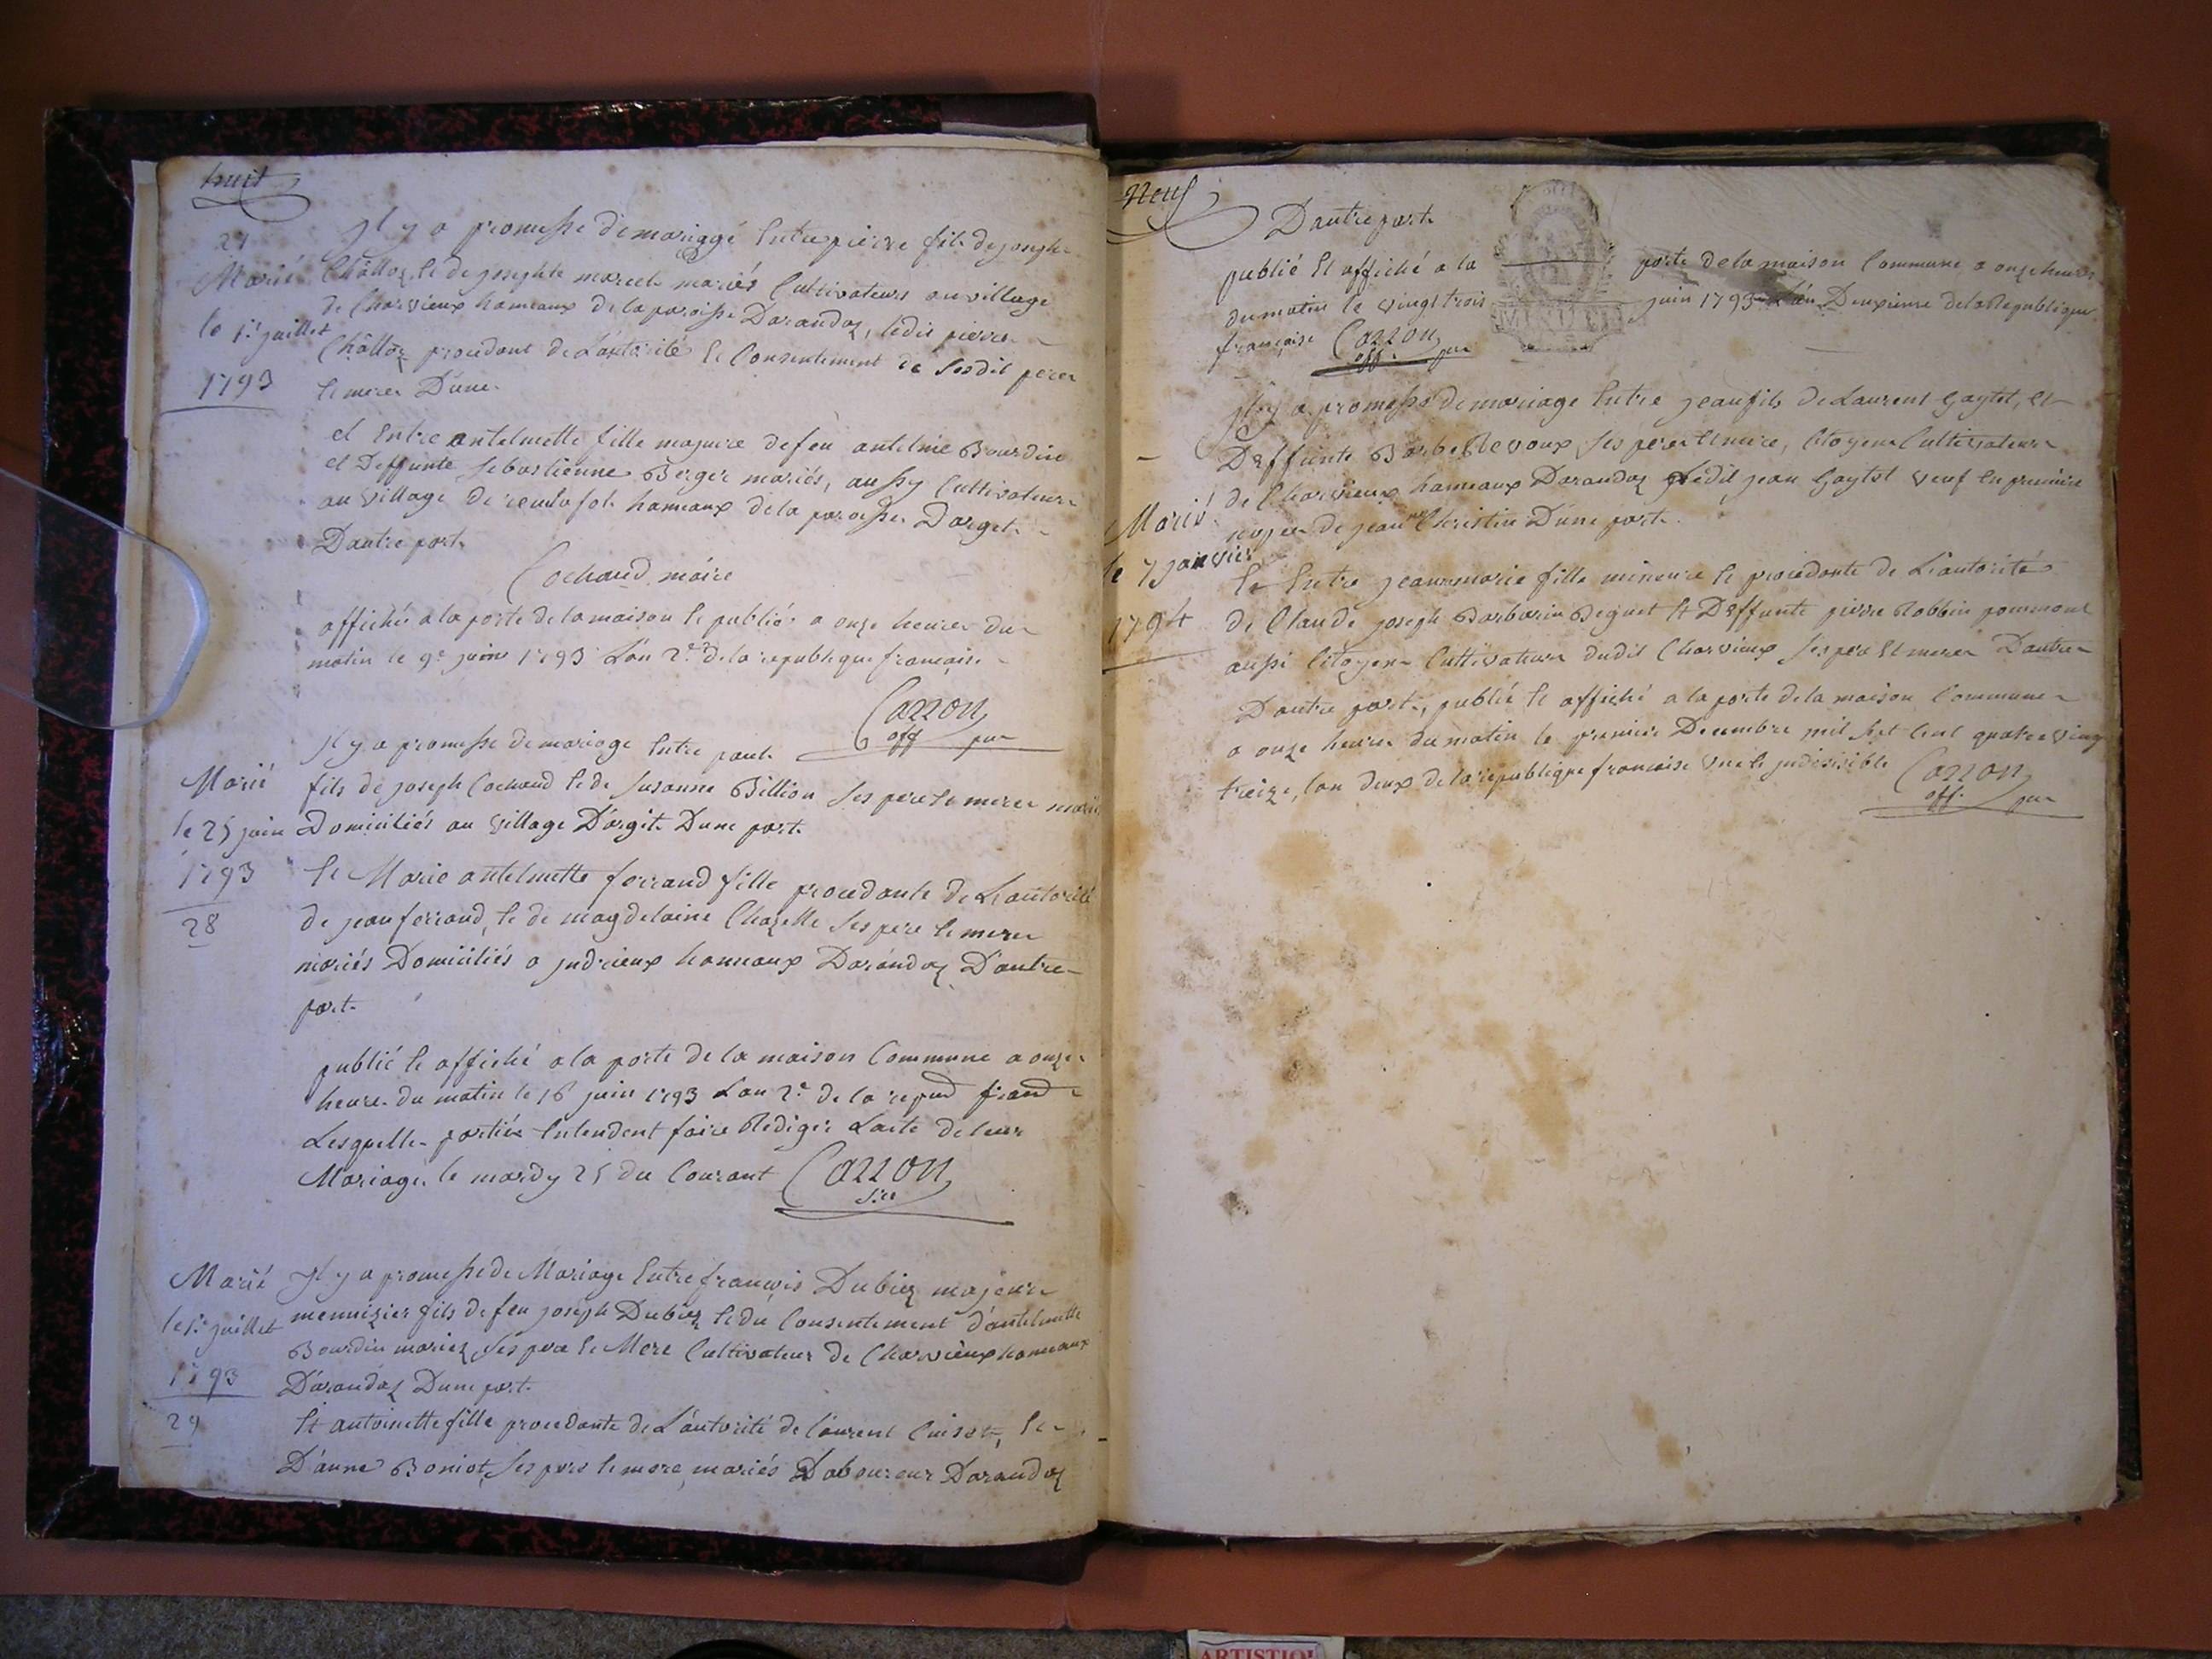 huit
27
Marié
le 1er juillet
1793
Il y a promesse de mariagé Entre pierre fils de joseph
Châlloz, et de josephte marcel mariés Cultivateurs au village
de Charvieux hameaux de la paroisse Darandaz, ledit pierre
Châlloz procedant de L'autorité et Consentement de sesdit perer
et merer D'une
et Entre antelmette fille majeure de feu antelme Bourdin
et Deffunte sebastienne Berger mariés, aussy Cultivateurs
au village de hameaux de la paroisse Darget
Dautre part
Cochaud maire
affiché a la porte de la maison et publié a onze heures du
matin le 9e juin 1793 L'an 2e de la republique française
Carron
off pur
Marié
le 25 juin
1793
28
Il y a promesse de mariage Entre paul
fils de joseph Cochaud et de susanne Billion ses pere et merer mariés
Domiciliés au village D'argit Dune part
et Marie antelmette ferrand fille procedante de L'autorité
de jean ferrand, et de magdelaine Chazelle ses pere et merer
mariés Domiciliés a judrieux hameaux Darandaz D'autre
part
publié et affiché a la porte de la maison Commune a onze
heure du matin le 16 juin 1793 L'an 2e de la repud frand
Lesquelle partiés Entendent faire Rediger Lacte de leur
Mariage le mardy 25 du Courant Carron
Marié
le 1er juillet
1793
29
Il y a promesse de Mariage Entre françois Dubiez majeure
mennizier fils de feu joseph Dubiez et du Consentement d'antelmette
Bourdin mariez ses pere et Mere Cultivateur de Charvieux hameaux
D'arandaz Dune part
Et antoinette fille procedante de L'autorité de laurent Cuisot, et
D'anne Boniot, ses pere et mere, mariés Laboureur Darandaz
Neuf
Dautre part
publié Et affiché a la porte de la maison Commune a onze heures
du matin le vingt trois juin 1793 L'an Deuxieme de la Republique
française Carron
off. pur
Marié
le 7 janvier
1794
Il y a promesse de mariage Entre jean fils de Laurent Gaytet, Et
Deffunte Barbe Revoux ses perer Et mere, Citoyens Cultivateurs
de Charvieux hameaux Darandaz Ledit jean Gaytet veuf En premiere
de jeanne Christin D'une part
Et Entre jeannemarie fille mineure Et procedante de L'autorité
de Claude joseph Barbarin Beguet Et Deffunte pierre Robbin pommant
aussi Citoyens Cultivateurs dudit Charvieux ses pere Et merer Dautre
Dautre part, publié Et affiché a la porte de la maison Commune
a onze heures du matin le premier Decembre mil sept Cent quatre vingt
treize, lan deux de la republique francaise une Et judisisible Carron
off. pur
ARTISTIQ